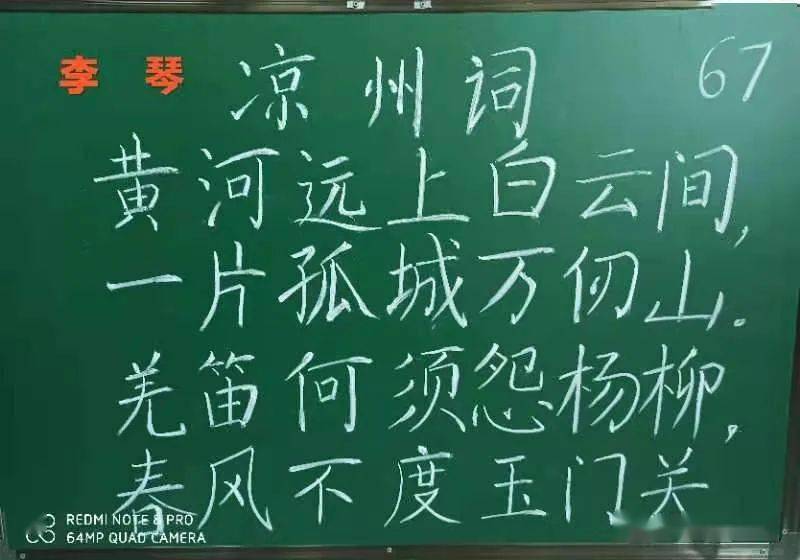 李琴 凉州词 67
黄河远上白云间,
一片孤城万仞山.
羌笛何须怨杨柳,
春风不度玉门关
REDMI NOTE 8 PRO
64MP QUAD CAMERA